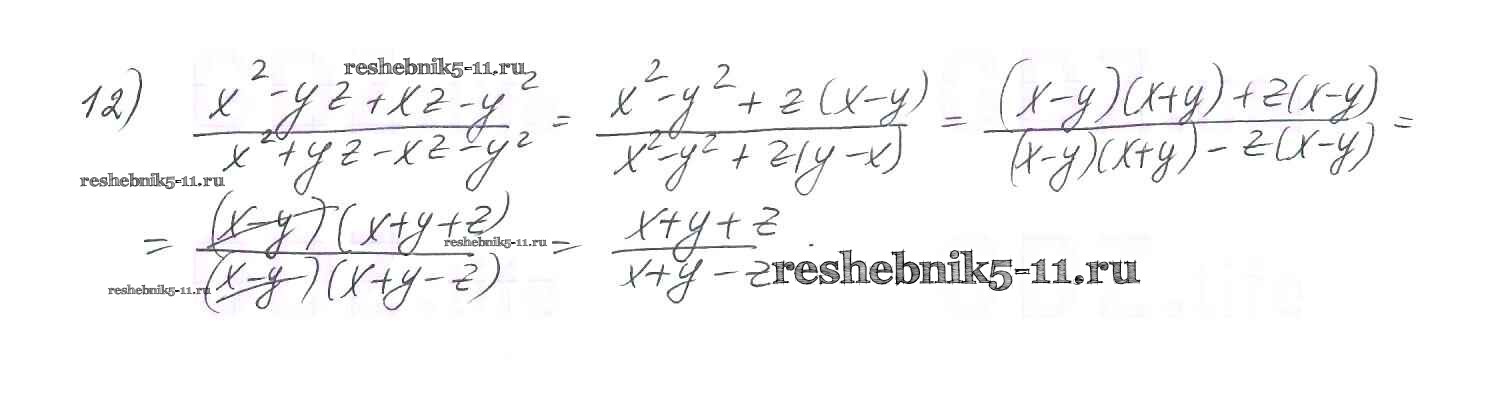 reshebnik5-11.ru
12) (x² - yz + xz - y²)/(x² + yz - xz - y²) = (x² - y² + z(x-y))/(x² - y² + z(y-x)) = ((x-y)(x+y) + z(x-y))/((x-y)(x+y) - z(x-y)) =
reshebnik5-11.ru
= ((x-y)(x+y+z))/((x-y)(x+y-z)) = (x+y+z)/(x+y-z)
reshebnik5-11.ru
reshebnik5-11.ru
reshebnik5-11.ru